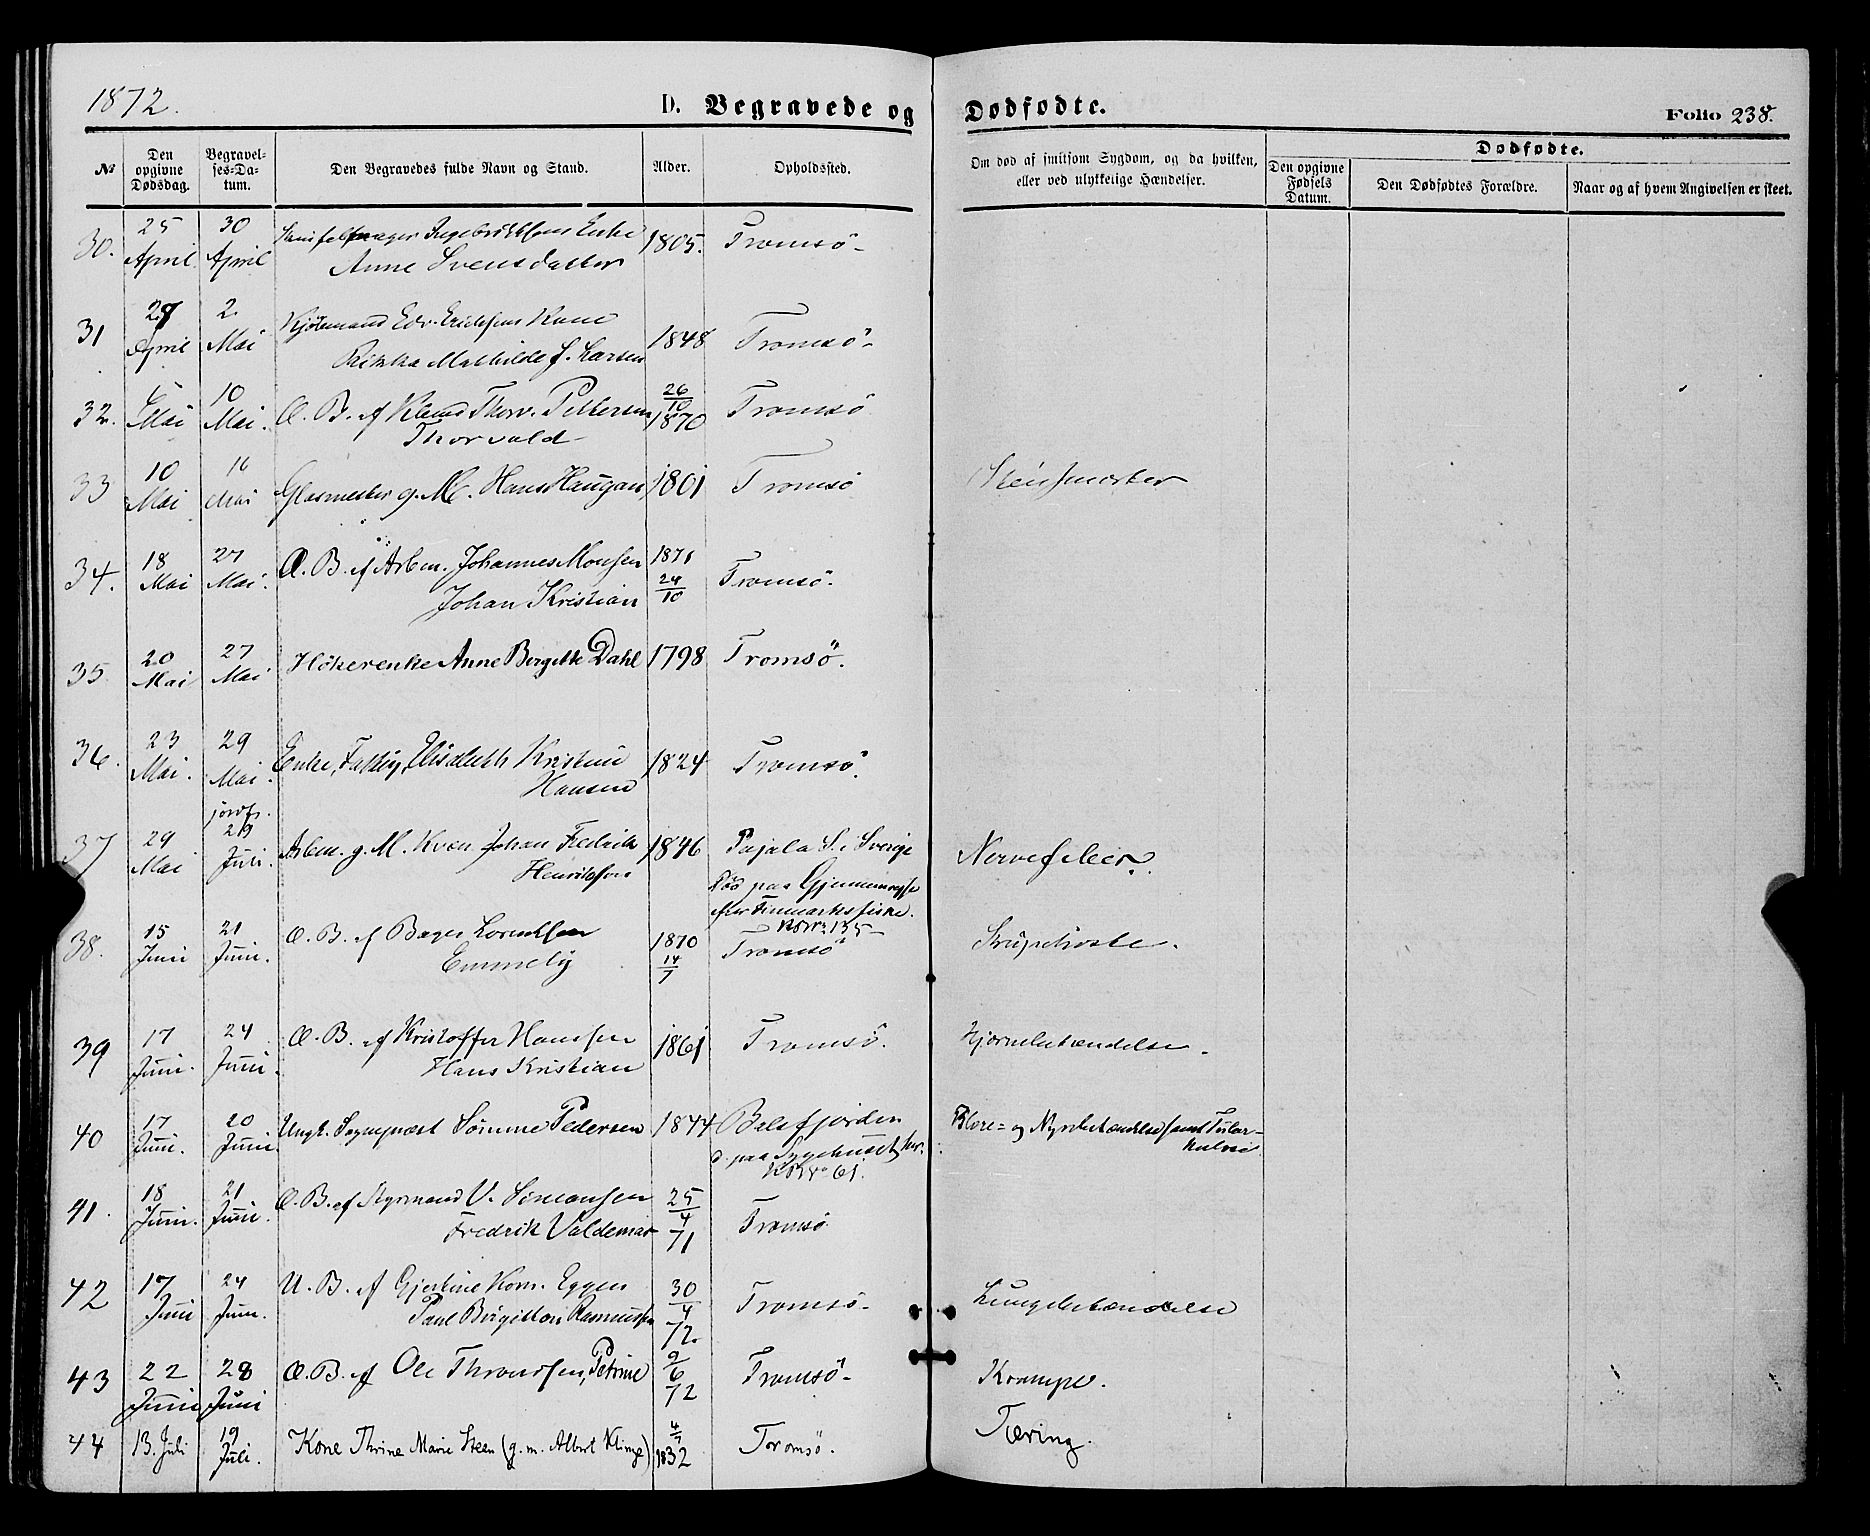 1872. D. Begravede og Dødfødte. Folio 238.
№ Den opgivne Dødsdag. Begravelses-Datum. Den Begravedes fulde Navn og Stand. Alder. Opholdssted. Om død af smitsom Sygdom, og da hvilken, eller ved ulykkelige Hændelser. Dødfødte.
Den opgivne Fødsels Datum. Den Dødfødtes Forældre. Naar og af hvem Angivelsen er skeet.
30. 25 April 30 April Ingebrigtsens Enke 1805. Tromsö
Anne Svensdatter
31 27 April 2. Mai Kjöbmand Edv. Erichsens Kone 1848 Tromsö
Rikka Mathilde f. Larsen
32. 6 Mai 10 Mai. Æ. B. af Thorv. Pettersen 26/10 1870 Tromsö
Thorvald
33 10 Mai 16 Mai Glasmester g. M. Hans Haugan 1801 Tromsö Stensmerter
34. 18 Mai 27 Mai. Æ. B. af Arbm. Johannes Monsen 1871 24/10 Tromsö.
Johan Kristian
35 20 Mai 27 Mai Hökerenke Anne Bergitte Dahl 1798 Tromsö.
36. 23 Mai. 29 Mai. Enke, Fattig, Elisabeth Kristine 1824 Tromsö.
Hansen
37 29 Mai jordf. 29 Juli. Arbm. g. M. Kvæn Johan Fredrik 1846 Pajala S. i Sverige Nervefeber.
Henriksen Död paa Gjennemrejse
efter Finmarksfiske.
K B No 135
38. 15 Juni 21 Juni. Æ. B. af Bager Lorentsen 1870 14/7 Tromsö Strupehoste.
Emmely
39 17 Juni. 24 Juni. Æ. B. af Kristoffer Hanssen 1861 Tromsö. Hjernebetændelse.
Hans Kristian
40 17 Juni. 20 Juni. Ungk. Sömme Pedersen 1844 Balsfjorden Blære- og Nyrebetændelse samt Tuber-
kulose
d. paa Sygehuset her.
K B No 61.
41. 18 Juni. 21 Juni. Æ. B. af Styrmand V. Simonsen 25/4 71 Tromsö
Fredrik Valdemar
42 17 Juni 24 Juni. U. B. af Gjertine Korn. Eggen 30/4 72. Tromsö Lungebetændelse
Paul Birgitton Rasmussen
43 22 Juni 28 Juni Æ. B. af Ole Thronsen, Petrine 9/6 72 Tromsö Krampe.
44 13. Juli 19 Juli. Kone Thrine Marie Steen (g. m. Albert Klinge) 4/7 1832 Tromsö. Tæring.